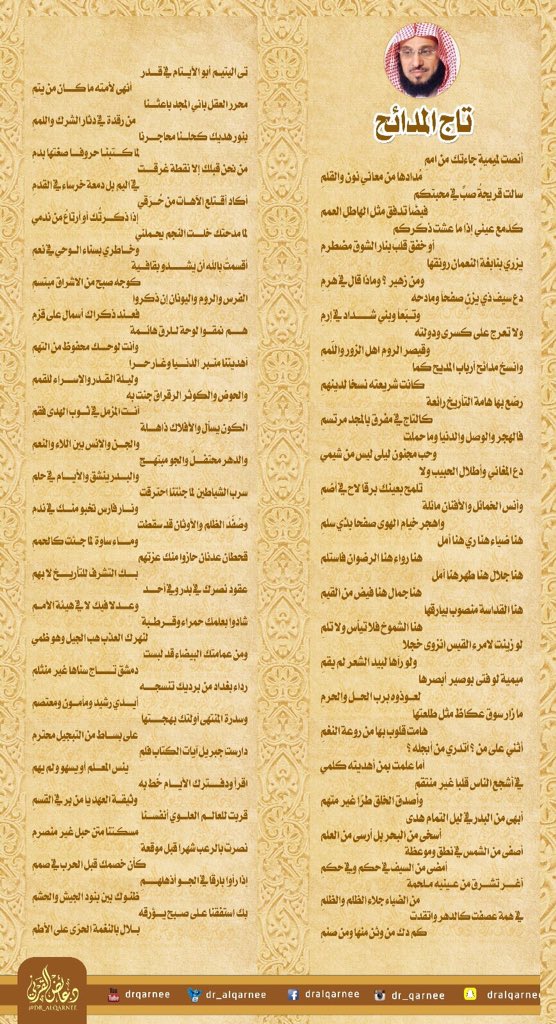 تاج المدائح
أنصت لميمية جاءتك من امم
مُدادها من معاني نون والقلم
سالت قريحة صبٍّ في محبتكم
فيضاً تدفق مثل الهاطل العمم
كادمع عيني إذا ما عشت ذكركم
أو خفق قلب بنار الشوق مضطرم
يزري بنابغة النعمان رونقها
ومن زهير ؟ وماذا قال في هرم
دع سيف ذي يزن صفحا ومادحه
وتبّعا وبني شداد في إرم
ولا تعرج على كسرى ودولته
وقيصر الروم اهل الزور واللّمم
وانسخ مدائح أرباب المديح كما
كانت شريعته نسخا لدينهم
رصع بها هامة التأريخ رائعة
كالتاج في مفرق بالمجد مرتسم
فالهجر والوصل والدنيا وما حملت
وحب مجنون ليلى ليس من شيمي
دع المغاني وأطلال الحبيب ولا
تلمح بعينك برقا لاح في أضم
وأنس الخمائل والأفنان مائلة
واهجر خيام الهوى صفحا بذي سلم
هنا ضياء هنا ري هنا أمل
هنا رواء هنا الرضوان فاستلم
هنا جلال هنا طهر هنا أمل
هنا جمال هنا فيض من القيم
هنا القداسة منصوب بيارقها
هنا الشموخ فلا تيأس ولا تلم
لو زينت لامرء القيس انزوى خجلا
ولو رأها لبيد الشعر لم يقم
ميمية لو فتى بوصير أبصرها
لعوذوه برب الحل والحرم
ما زار سوق عكاظ مثل طلعتها
هامت قلوب بها من روعة النغم
أثني على من ؟ أتدري من أبجله ؟
أما علمت بمن أهديته كلمي
في أشجع الناس قلبا غير منتقم
وأصدق الخلق طرًا غير متهم
أبهى من البدر في ليل التمام هدى
أسخى من البحر بل أرسى من العلم
أصفى من الشمس في نطق وموعظة
أمضى من السيف في حكم وفي حكم
أغر تشرق من عينيه ملحمة
من الضياء جلاء الظلم والظلم
في همة عصفت كالدهر واتقدت
كم دك من وثن منها ومن صنم
تى اليتيم أبو الأيتام في قدر
أنهى لأمته ما كان من يتم
محرر العقل باني المجد باعثنا
من رقدة في دثار الشرك واللمم
بنور هديك كحلنا محاجرنا
لما كتبنا حروفا صغتها بدم
من نحن قبلك إلا نقطة غرقت
في اليم بل دمعة خرساء في القدم
أكاد أقتلع الآهات من حُرقي
إذا ذكرتك أو أرتاع من ندمي
لما مدحتك خلت النجم يحملني
وخاطري بسناء الوحي في نعم
أقسمت بالله أن يشدو بقافية
كوجه صبح من الاشراق مبتسم
الفرس والروم واليونان إن ذكروا
فعند ذكراك أسمال على قزم
هم نمقوا لوحة للرق هائمة
وانت لوحك محفوظ من التهم
أهديتنا منبر الدنيا وغار حرا
وليلة القدر والاسراء للقمم
والحوض والكوثر الرقراق جئت به
أنت المزمل في ثوب الهدى فقم
الكون يسأل والأفلاك ذاهلة
والجن والانس بين اللاء والنعم
والدهر محتفلٌ والجو مبتهج
والبدر ينشق والأيام في حلم
سرب الشياطين لما جئتنا احترقت
ونار فارس تخبو منك في ندم
وصُفد الظلم والأوثان قد سقطت
وماء ساوة لما جئت كالحمم
قحطان عدنان حازوا منك عزتهم
بك التشرف للتأريخ لا بهم
عقود نصرك في بدر وفي أحد
وعدلا فيك لا في هيئة الأمم
شادوا بعلمك حمراء وقرطبة
لنهرك العذب هب الجيل وهو ظمي
ومن عمامتك البيضاء قد لبست
دمشق تاج سناها غير منثلم
رداء بغداد من برديك تنسجه
أيدي رشيد ومأمون ومعتصم
وسدرة المنتهى أولتك بهجتها
على بساط من التبجيل محترم
دارست جبريل آيات الكتاب فلم
ينس المعلم أو يسهو ولم يهم
اقرأ ودفترك الأيام خُط به
وثيقة العهد يا من بر في القسم
قربت للعالم العلوي أنفسنا
مسكتنا متن حبل غير منصرم
نصرت بالرعب شهرا قبل موقعة
كأن خصمك قبل الحرب في صمم
إذا رأوا بارقا في الجو أذهلهم
ظنوك بين بنود الجيش والحشم
بك استفقنا على صبح يؤرقه
بلال بالنغمة الحرّى على الأطم
د.عائض القرني
@DR_ALQARNEE
drqarnee
dr_alqarnee
dralqarnee
dr_qarnee
dralqarnee